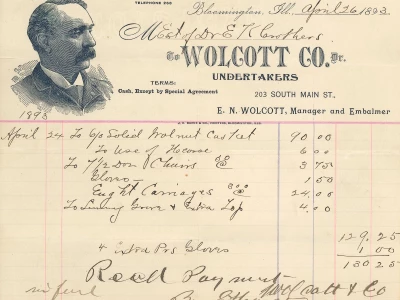 TELEPHONE
Bloomington, Ill. April 26 1893
M Est of Dr E K Crothers
To WOLCOTT CO. Dr.
UNDERTAKERS
TERMS:
Cash, Except by Special Agreement
203 SOUTH MAIN ST.,
E. N. WOLCOTT, Manager and Embalmer
1893
April 24 To 6/3 Solid Walnut Casket 90.00
To Use of Hearse 6.00
To 7 1/2 Doz Chairs 3 75
Gloves 1.50
Eight Carriages 3 00 24.00
To Lining Grave & Extra Top 4.00
129.25
4 Extra Prs Gloves 1 00
130 25
Recd Payment
in full Wolcott & Co